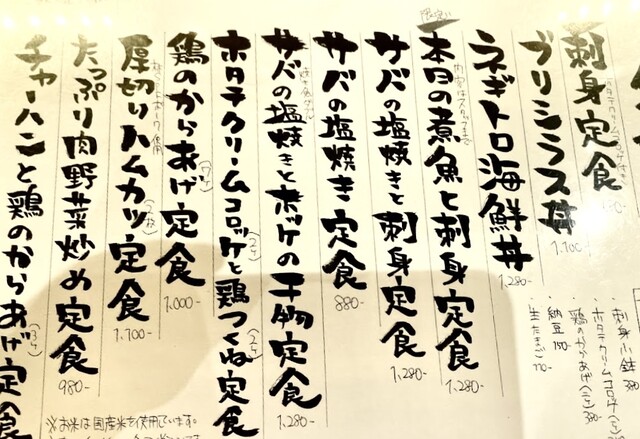 刺身定食
ブリシラス丼
1,100-
ネギトロ海鮮丼
1,280-
限定
本日の煮魚と刺身定食
1,280-
サバの塩焼きと刺身定食
1,280-
サバの塩焼き定食
880-
サバの塩焼きとホッケの干物定食
1,280-
ホタテクリームコロッケと鶏つくね定食
鶏のからあげ定食
1,000-
厚切りハムカツ定食
1,100-
たっぷり肉野菜炒め定食
980-
チャーハンと鶏のからあげ定食
・刺身小鉢
ホタテクリームコロッケ
鶏のからあげ
納豆 150-
生たまご 110-
※お米は国産米を使用しています。